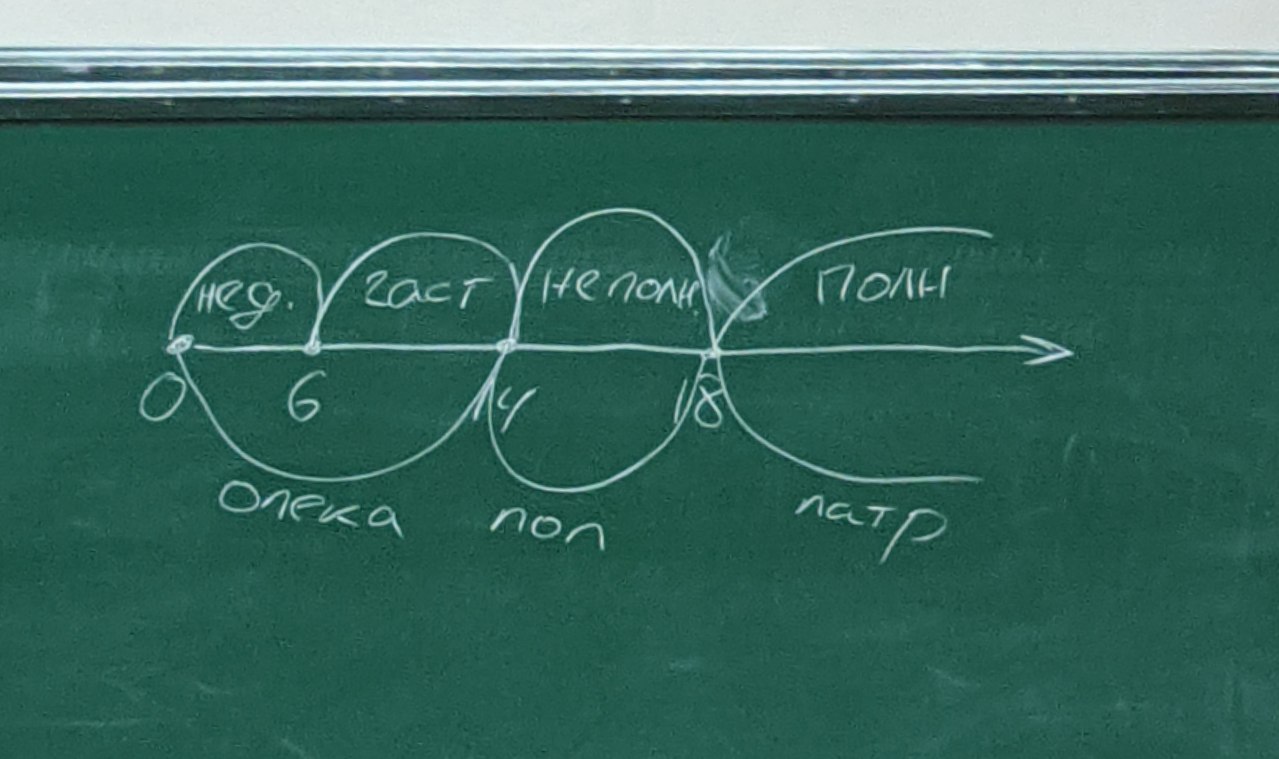 нед. част неполн. полн
0 6 14 18
опека поп патр